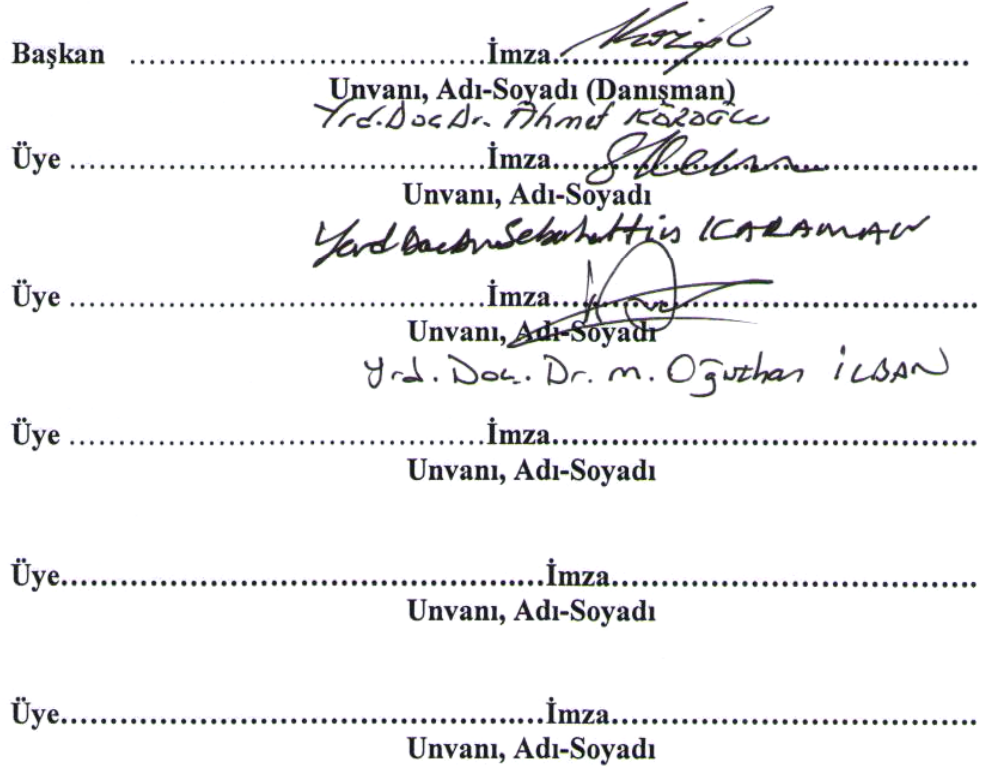 Başkan ................................................İmza................................................
Unvanı, Adı-Soyadı (Danışman)
Yrd.Doç.Dr. Ahmet KÖZOĞLU
Üye ................................................İmza................................................
Unvanı, Adı-Soyadı
Yard Doç Dr Sebahattin KARAMAN
Üye ................................................İmza................................................
Unvanı, Adı-Soyadı
Yrd. Doç. Dr. M. Oğuzhan İLBAN
Üye ................................................İmza................................................
Unvanı, Adı-Soyadı
Üye................................................İmza................................................
Unvanı, Adı-Soyadı
Üye................................................İmza................................................
Unvanı, Adı-Soyadı